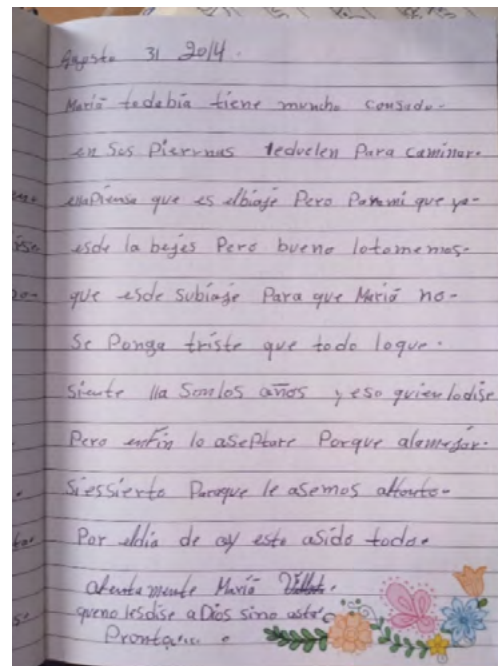 Agosto 31 2014.
Mariā todabia tiene muncho cansado-
en Sos Piernas leduelen Para caminar.
ellaPiensa que es elbiaje Pero Parami que ya-
esde la bejes Pero bueno lotomemos-
que esde subiaje Para que Mariā no-
Se Ponga triste que todo loque.
Siente lla Sonlos años y eso quien lodise
Pero enfin lo aseptare Porque alomejor.
Siessierto Paraque le asemos attonto-
Por eldia de oy esto asido todo.
atentamente Mariā
queno lesdise aDios sino asta
Pronto